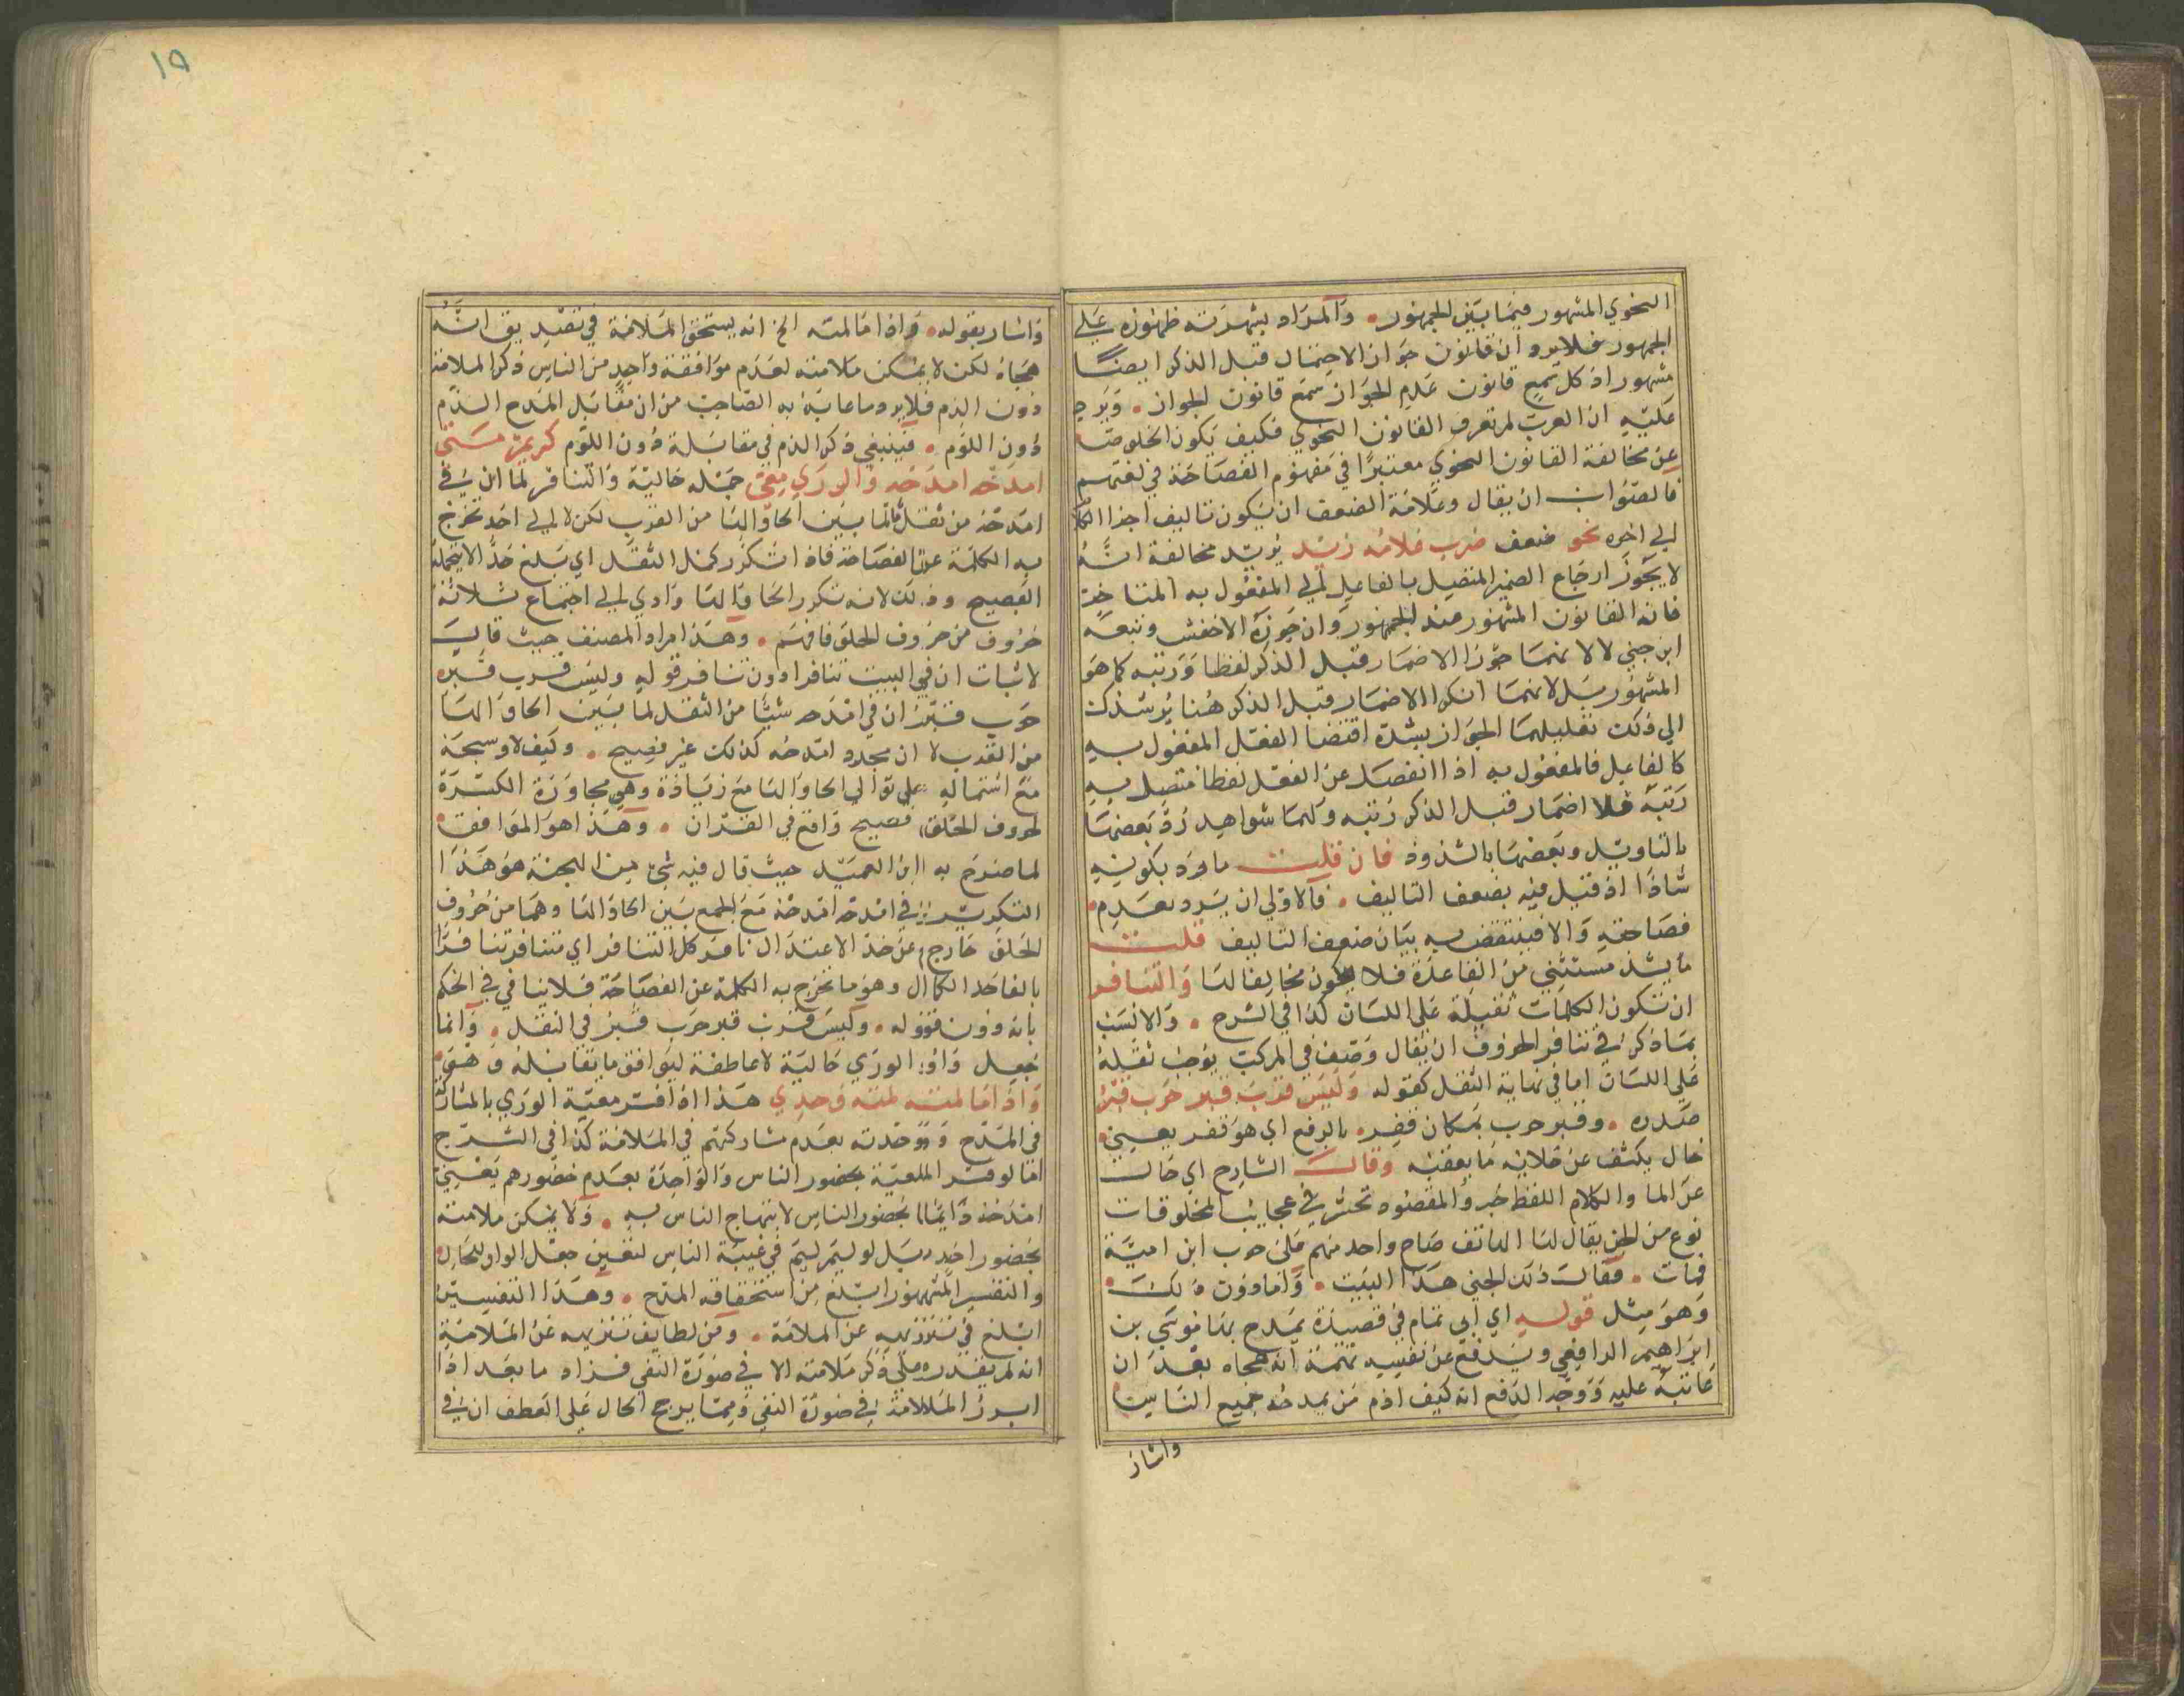 النحوي المشهور فيما بين الجمهور والمراد بشهرته ظهوره على
الجمهور فلا يرد ان قانون جواز الاضمار قبل الذكر ايضا
مشهور اذ كل سمع قانون عدم الجواز سمع قانون الجواز ويرد
عليه ان العرب لم تعرف القانون النحوي فكيف يكون الخلوص
عن مخالفة القانون النحوي معتبرا في مفهوم الفصاحة في لغتهم
فالصواب ان يقال وعلامة الضعف ان يكون تاليف اجزا الكلام
الى اخره نحو ضعف ضرب غلامه زيد يريد مخالفة انه
لا يجوز ارجاع الضمير المتصل بالفاعل الى المفعول به المتاخر
فانه القانون المشهور عند الجمهور وان جوزه الاخفش وتبعه
ابن جني لا لانهما جوزا الاضمار قبل الذكر لفظا ورتبه كما هو
المشهور بل لانهما انكرا الاضمار قبل الذكر هنا يرشدك
الى ذلك تعليلهما الجواز بشدة اقتضا الفعل المفعول به
كالفاعل فالمفعول به اذا انفصل عن الفعل لفظا متصل به
رتبة فلا اضمار قبل الذكر رتبه ولهما شواهد رد بعضها
بالتاويل وبعضها بالشذوذ فان قلت ما ورد بكونه
شاذا اذ قيل فيه بضعف التاليف فالاولى ان يرد بعدم
فصاحته والا فينتقض به بيان ضعف التاليف قلت
ما يشذ مستثني من القاعدة فلا يكون مخالفا لها والتنافر
ان تكون الكلمات ثقيلة على اللسان كذا في الشرح والانسب
بما ذكر في تنافر الحروف ان يقال وصف في المركب يوجب ثقله
على اللسان اما في نهاية الثقل كقوله وليس قرب قبر حرب قبر
صدره وقبر حرب بمكان قفر بالرفع اي هو قفر يعني
خال يكشف عن خلائه ما يعقبه وقال الشارح اي خال
عن الما والكلام اللفظ خبر والمقصود تحسر في عجايب المخلوقات
نوع من الجن يقال لها الهاتف صاح واحد منهم على حرب ابن امية
فمات فقال ذلك الجني هذا البيت واما دون ذلك
وهو مثل قوله اي ابي تمام في قصيدة يمدح بها موسى بن
ابراهيم الرافعي ويدفع عن نفسه تهمة انه هجاه بعد ان
عاتبه عليه ووجه الدفع انه كيف اذم من يمدحه جميع الناس
واشار
واشار بقوله واذا ما لمته الخ انه يستحق الملامة في تصديق انه
هجاه لكن لا يمكن ملامته لعدم موافقة واحد من الناس ذكر الملامة
دون الذم فلا يرد ما عابه به الصاحب من ان مقابل المدح الذم
دون اللوم فينبغي ذكر الذم في مقابلة دون اللوم كريم متى
امدحه امدحه والورى معي جملة حالية والتنافر لما ان في
امدحه من ثقل ما لما بين الحا والها من القرب لكن لا الى احد تخرج
به الكلمة عن الفصاحة فاذا تكرر كمل الثقل اي بلغ حدا لا يتحمله
الفصيح وذلك لانه تكرر الحا والها وادي الى اجتماع ثلاثة
حروف من حروف الحلق فافهم وهذا مراد المصنف حيث قال
لاثبات ان في البيت تنافرا دون تنافر قوله وليس قرب قبر
حرب قبر ان في امدحه شيئا من الثقل لما بين الحا والها
من القرب لا ان مجرد امدحه كذلك غير فصيح وكيف لا وسبحه
مع اشتماله على توالي الحا والها مع زيادة وهي مجاورة الكسرة
لحروف الحلق فصيح واقع في القران وهذا هو الموافق
لما صرح به ابن العميد حيث قال فيه شي من الهجنة هو هذا
التكرير في امدحه امدحه مع الجمع بين الحا والها وهما من حروف
الحلق خارج عن حد الاعتدال نافر كل التنافر اي متنافر تنافرا
بالغا حد الكمال وهو ما تخرج به الكلمة عن الفصاحة فلا ينافي في الحكم
بانه دون قوله وليس قرب قبر حرب قبر في الثقل وانما
جعل واو الورى حالية لا عاطفة ليوافق ما يقابله وهو
واذا ما لمته لمته وحدي هذا اذا فسر معية الورى بالمشاركة
في المدح ووحدته بعدم مشاركتهم في الملامة كذا في الشرح
اما لو فسر المعية بحضور الناس والواحدة بعدم حضورهم يعني
امدحه دايما بحضور الناس لابتهاج الناس به ولا يمكن ملامته
بحضور احد بل لو ليم ليم في غيبة الناس لتعين جعل الواو للحال
والتفسير المشهور ابلغ من استحقاقه المدح وهذا التفسير
ابلغ في تنزيهه عن الملامة ومن لطايف تنزيهه عن الملامة
انه لم يقدر على ذكر ملامته الا في صورة النفي فزاد ما بعد اذا
ابرز الملامة في صورة النفي ومما يرجح الحال على العطف ان في